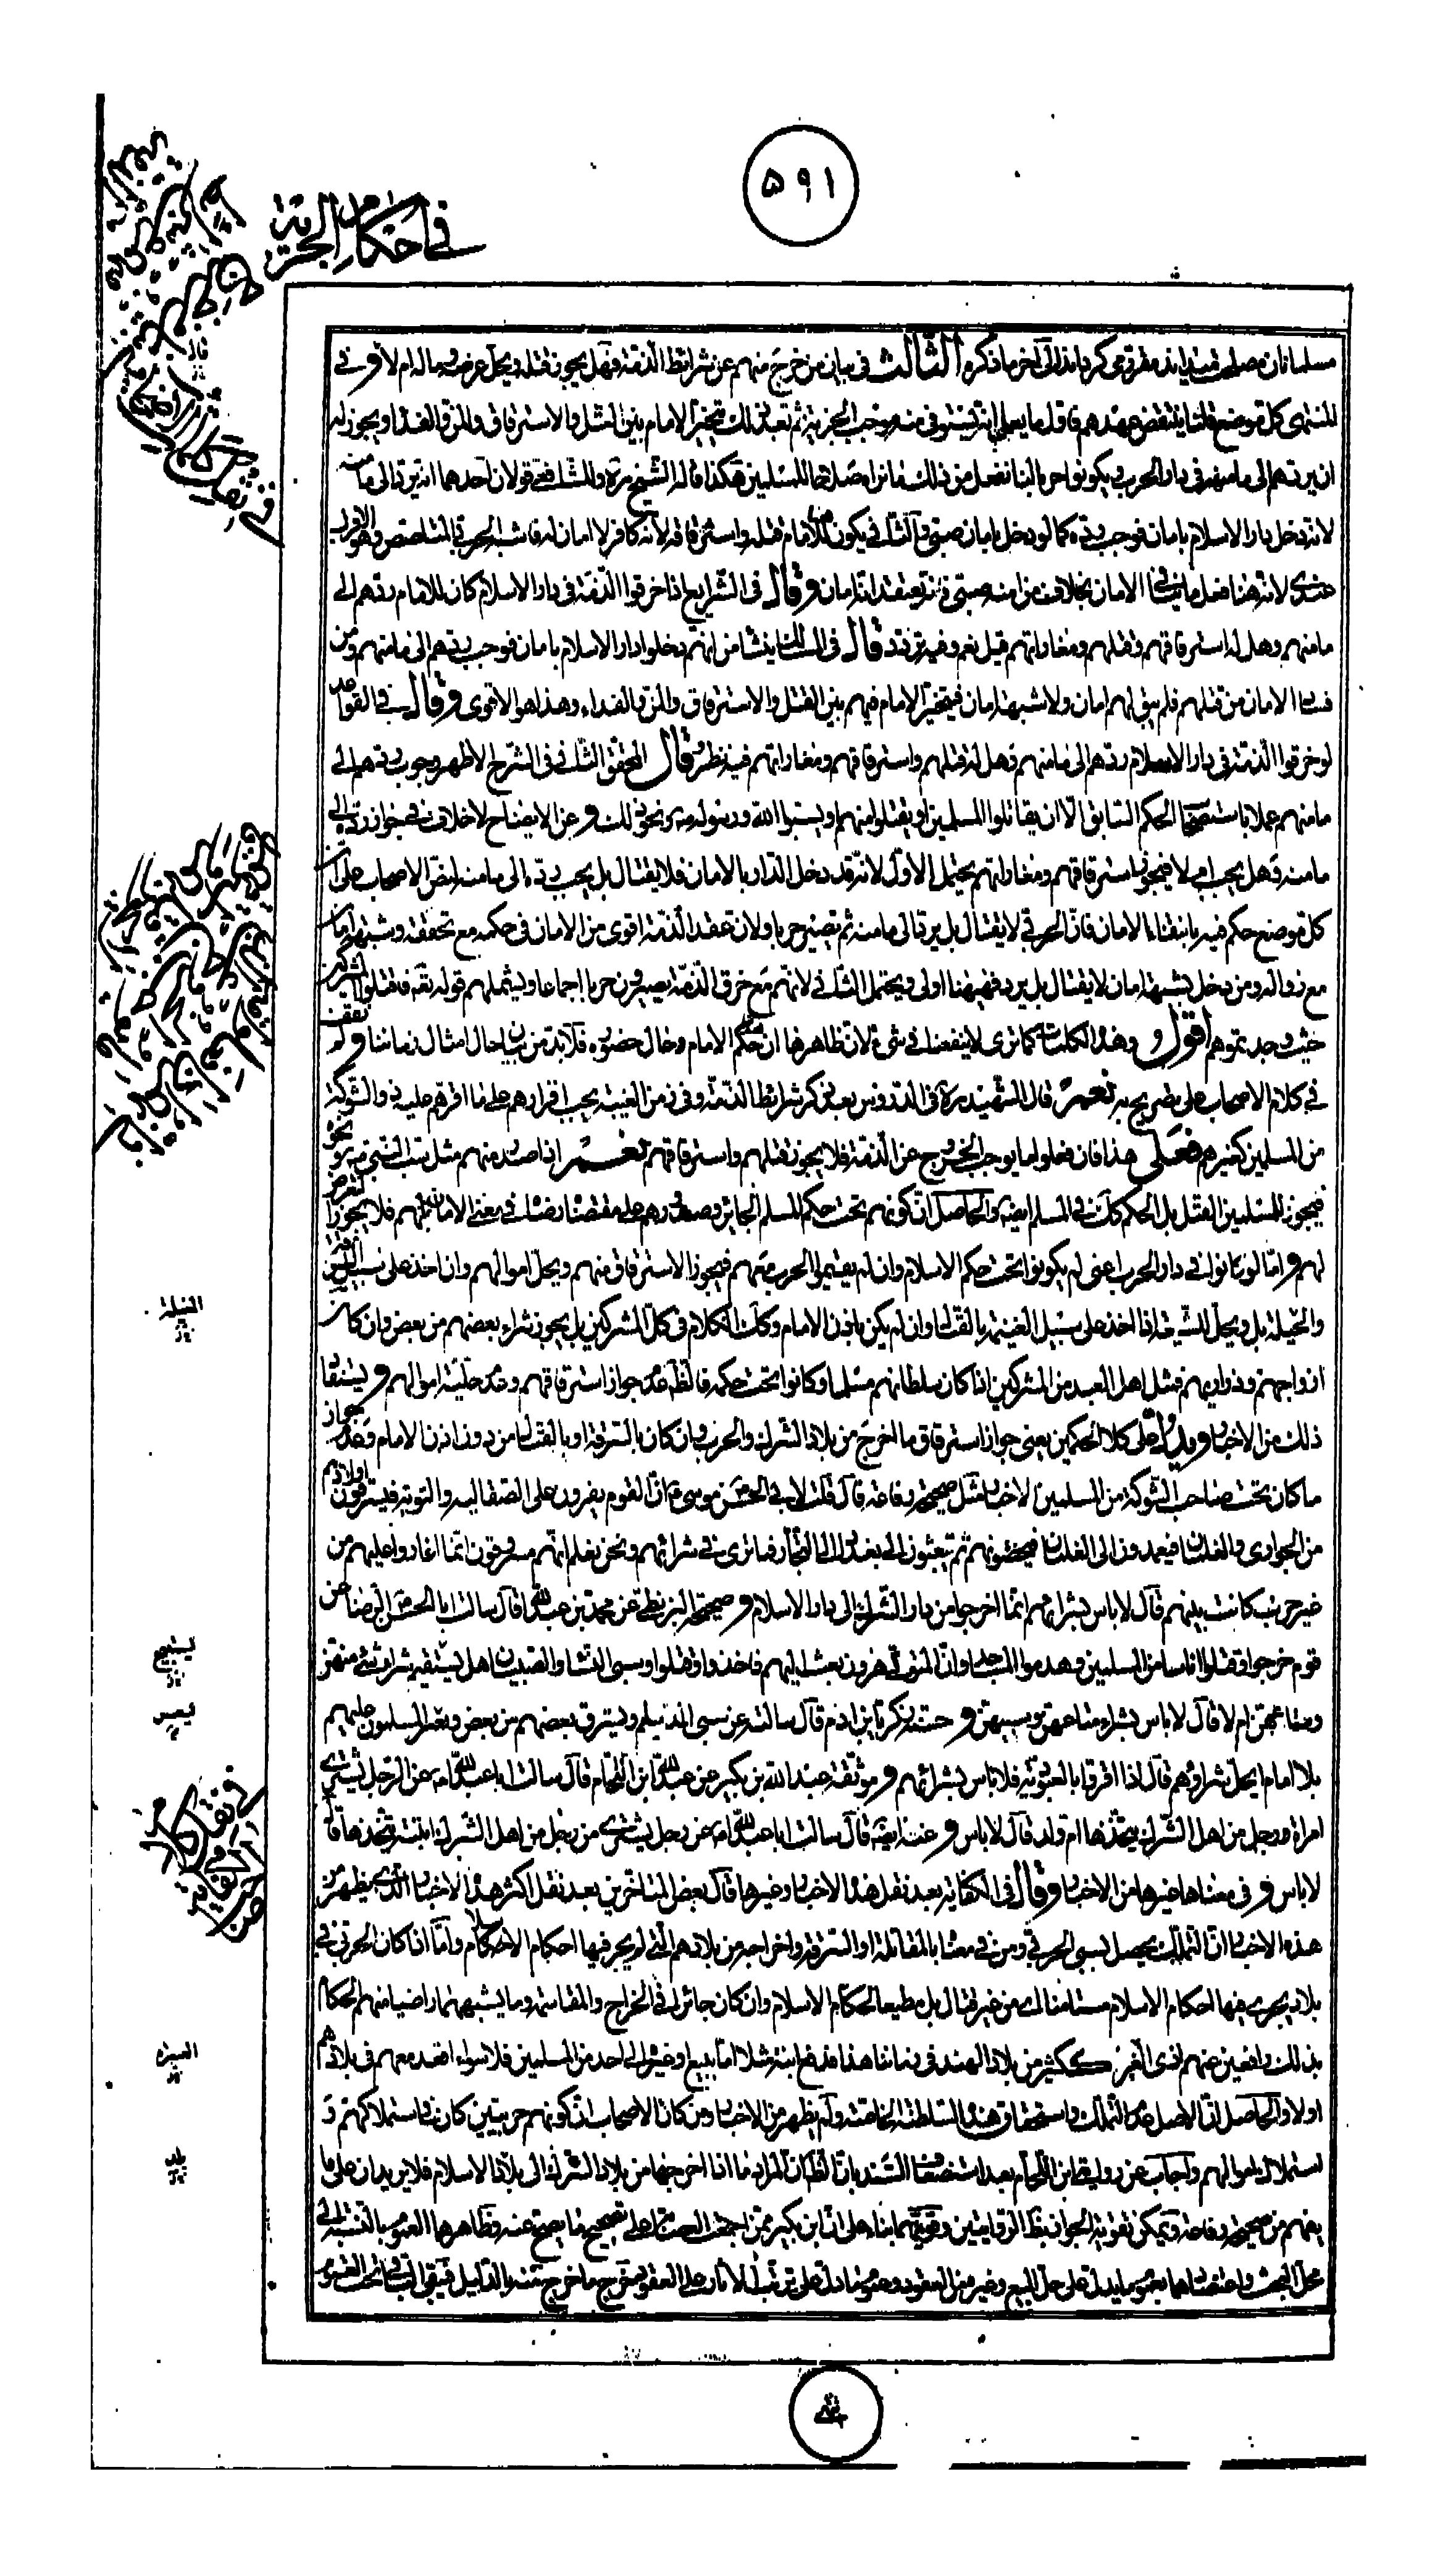 ۵۹۱
في احكام الجزية
مسلمانان صلح مقرر می كرده اند الى اخر ما ذكره الثالث في بيان من خرج منهم عن شرائط الذمة فهل يجوز قتله ويحل عرضه وماله ام لا وفي
المنتهى كل موضع قلنا ينتقض عهدهم فاول ما يعمل انه يستوفى منه موجب الجزية ثم بعد ذلك يتخير الامام بين القتل والاسترقاق والمن والفداء ويجوز له
ان يردهم الى مامنهم في دار الحرب ويكونوا حربا لنا فيفعل من ذلك ما يراه صلاحا للمسلمين هكذا قاله الشيخ ره وللشافعي قولان احدهما انه يرد الى مامنه
لانه دخل دار الاسلام بامان فوجب رده كما لو دخل بامان صبي والثاني يكون للامام قتله واسترقاقه لانه كافر لا امان له فاشبه الحربي المتلصص وهو الاقرب
عندي لانه هنا فعل ما ينافي الامان بخلاف من امنه صبي فانه يعتقد انه امان وقال في الشرايع اذا خرقوا الذمة في دار الاسلام كان للامام ردهم الى
مامنهم وهل له استرقاقهم وقتلهم ومفاداتهم قيل نعم وفيه تردد قال في المسالك ينشا من انهم دخلوا دار الاسلام بامان فوجب ردهم الى مامنهم ومن
فساد الامان من قبلهم فلم يبق لهم امان ولا شبهة امان فيتخير الامام فيهم بين القتل والاسترقاق والمن والفداء وهذا هو الاقوى وقال في القواعد
لو خرقوا الذمة في دار الاسلام ردهم الى مامنهم وهل له قتلهم واسترقاقهم ومفاداتهم فيه نظر قال المحقق الثاني في الشرح الاظهر وجوب ردهم الى
مامنهم عملا باستصحاب الحكم السابق الا ان يقاتلوا المسلمين او يقتلوا منهم او يسبوا الله ورسوله ص ونحو ذلك وعن الايضاح لا خلاف في جواز رده الى
مامنه وهل يجب ام لا فيجوز استرقاقهم ومفاداتهم يحتمل الاول لانه قد دخل الدار بالامان فلا يقتال بل يجب رده الى مامنه لنص الاصحاب على ان
كل موضع حكم فيه بانتفاء الامان فان الحربي لا يغتال بل يرد الى مامنه ثم يصير حربا ولان عقد الذمة اقوى من الامان في حكمه مع تحققه وشبهة امان
مع زواله ومن دخل بشبهة امان لا يغتال بل يرد فههنا اولى ويحتمل الثاني لانهم مع خرق الذمة يصيرون حربا اجماعا ويشملهم قوله تعالى فاقتلوا المشركين
حيث وجدتموهم اقول وهذه الكلمات كما ترى لا ينفعنا في شيء لان ظاهرها ان حكم الامام وحال حضوره فلا بد من بيان حال امثال زماننا ولم نقف
في كلام الاصحاب على تصريح به نعم قال الشهيد ره في الدروس بعد ذكر شرائط الذمة وفي زمن الغيبة يجب اقرارهم على ما اقرهم عليه ذو الشوكة
من المسلمين كغيرهم فعلى هذا فان فعلوا ما يوجب الخروج عن الذمة فلا يجوز قتلهم واسترقاقهم نعم اذا صدر منهم مثل سب النبي ص ونحو
فيجوز للمسلمين القتل بل الحكم كك في المسلم ايضا والحاصل ان كونهم تحت حكم المسلم الجائر وصدورهم على مقتضا رضاه في معنى الامان لهم فلا يجوز التعرض
لهم واما لو كانوا في دار الحرب اعني لم يكونوا تحت حكم الاسلام وان لم يقيموا الحرب معهم فيجوز الاسترقاق منهم ويحل اموالهم وان اخذ على سبيل السرقة
والحيلة بل ويحل للشيعة اذا اخذ على سبيل الغنيمة بالقتال وان لم يكن باذن الامام وكك الكلام في كل المشركين بل يجوز شراء بعضهم من بعض وان كان
ازواجهم وذراريهم فمثل اهل الهند من المشركين اذا كان سلطانهم مسلما وكانوا تحت حكمه فالظاهر عدم جواز استرقاقهم وعدم حلية اموالهم ويستفاد
ذلك من الاخبار ويدل على كلا الحكمين يعني جواز استرقاق ما اخرج من بلاد الشرك والحرب وان كان بالسرقة او بالقتال من دون اذن الامام وعدم جواز
ما كان تحت صاحب الشوكة من المسلمين الاخبار مثل صحيحة رفاعة قال قلت لابي الحسن موسى ع ان القوم يغيرون على الصقالبة والنوبة فيسرقون اولادهم
من الجواري والغلمان فيعمدون الى الغلمان فيخصونهم ثم يبعثون الى بغداد الى التجار فما ترى في شرائهم ونحن نعلم انهم مسروقون انما اغاروا عليهم من
غير حرب كانت بينهم قال لا باس بشرائهم انما اخرجوا من دار الشرك الى دار الاسلام وصحيحة البزنطي عن محمد بن عبد الله قال سالت ابا الحسن الرضا عن
قوم خرجوا وقتلوا اناسا من المسلمين وهدموا المساجد وان المتوفى هرون بعث اليهم فاخذوا وقتلوا وسبى النساء والصبيان هل يستقيم شراء شيء منهن
ويطاهن ام لا قال لا باس بشراء متاعهن وسبيهن وحسنة زكريا بن ادم قال سالته عن سبي الديلم ويسترق بعضهم من بعض ويغير المسلمون عليهم
بلا امام ايحل شراؤهم قال اذا اقروا بالعبودية فلا باس بشرائهم وموثقة عبد الله بن بكير عن عبد الله بن اللحام قال سالت ابا عبد الله ع عن الرجل يشتري
امراة رجل من اهل الشرك يتخذها ام ولد قال لا باس وعنه ايضا قال سالت ابا عبد الله ع عن رجل يشتري من رجل من اهل الشرك ابنته فيتخذها قال
لا باس وفي معناها غيرها من الاخبار وقال في الكفاية بعد نقل هذه الاخبار وغيرها قال بعض المتاخرين بعد نقل اكثر هذه الاخبار الذي يظهر من
هذه الاخبار ان التملك يحصل بسبي الحربي ومن في معناه بالمقاتلة او السرقة واخراجه من بلادهم التي لم يجر فيها احكام الاسلام واما اذا كان الحربي في
بلاد يجري فيها احكام الاسلام مستامنا له من غير قتال بل مطيعا لحكام الاسلام وان كان جائرا في الخراج والمقاسمة وما يشبههما راضيا منهم الحكام
بذلك رافعين عنهم اذى الغير ككثير من بلاد الهند في زماننا هذا فدفع ابنه مثلا اما ببيع او غيره الى احد من المسلمين فلا سواء قعد معهم في بلادهم
او لا والحاصل ان الاصل عدم التملك واستحقاق هذه السلطنة الخاصة ولم يظهر من الاخبار ومن كلام الاصحاب ان كونهم حربيين كان في استملاكهم و
استملاك اموالهم واجاب عن رواية ابن اللحام بعد استضعاف السند بان الظاهر ان المراد ما اذا اخرجها من بلاد الشرك الى بلاد الاسلام فلا يزيدان على ما
يفهم من صحيحة رفاعة ويمكن تقوية الجواز نظرا الى الروايتين وقويتهما بناء على ان ابن بكير ممن اجمعت العصابة على تصحيح ما يصح عنه وظاهرها العموم بالنسبة الى
محل البحث واعتضادها بعموم ما يدل على حل البيع وغيره من العقود وعموم ما دل على ترتب الاثار على العقود خرج ما خرج منه بالدليل فيبقى الباقي تحت العموم